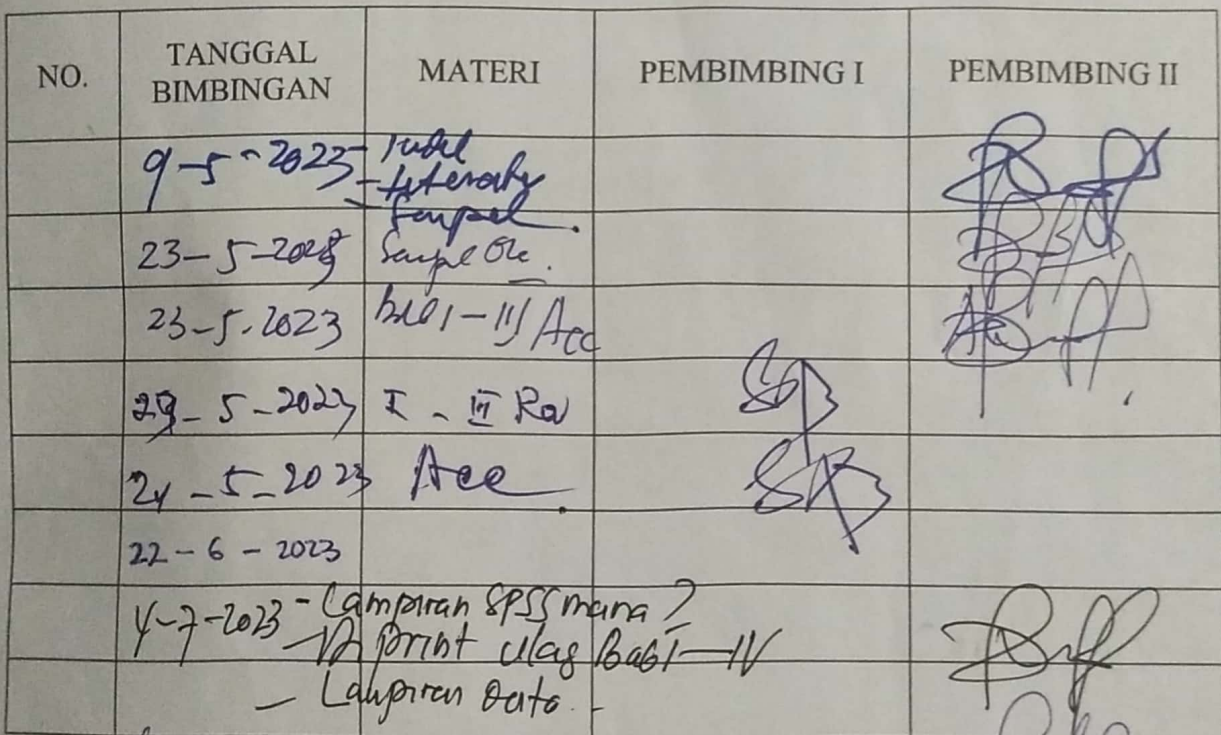 NO. TANGGAL BIMBINGAN MATERI PEMBIMBING I PEMBIMBING II
9-5-2023 - Judul
- Literatur
- Sampel.
23-5-2023 Sampel Ok.
23-5-2023 Bab I-III Acc
29-5-2023 I - III
24-5-2023 Acc.
22-6-2023
4-7-2023 - Lampiran SPSS mana?
- print ulag Bab I-IV
- Lampiran Data.